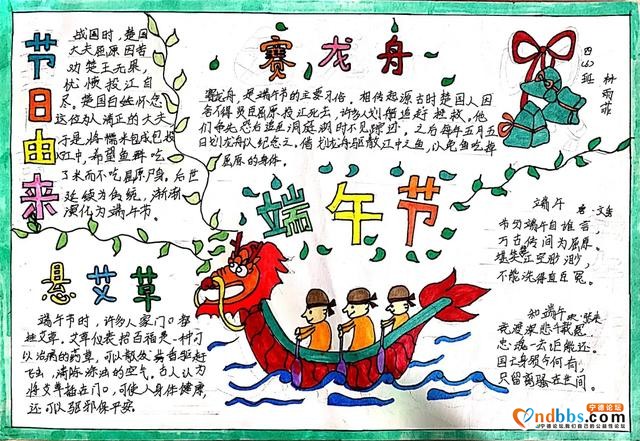 节日由来
战国时，楚国
大夫屈原因者
劝楚王无果，
忧愤投江自
尽。楚国百姓怀念
这位为人清正的大夫
于是将糯米包成包投
江中，希望鱼群吃
了米而不吃屈原尸身。后世
延续为传统，渐渐
演化为端午节。
赛龙舟
赛龙舟，是端午节的主要习俗，相传起源古时楚国人因
舍不得贤臣屈原投江死去，许多人划船追赶拯救。他
们争先恐后追至洞庭湖时不见踪迹，之后每年五月五
日划龙舟以纪念之。借划龙舟驱散江中之鱼，以免鱼吃掉
屈原的身体。
四(4)班
林雨菲
端午节
端午
唐·文秀
节分端午自谁言，
万古传闻为屈原。
堪笑楚江空渺渺，
不能洗得直臣冤。
和端午
张耒
竞渡深悲千载冤，
忠魂一去讵能还。
国亡身殒今何有，
只留离骚在世间。
悬艾草
端午节时，许多人家门口都
挂艾草。艾草代表招百福是一种可
以治病的药草，可以散发
驱赶
飞虫，清除
的空气。古人认为
将艾草插在门口，可使人身体健康，
还可以驱邪保平安。
ndbbs.com
宁德论坛
宁德论坛,我们自己的公益性论坛